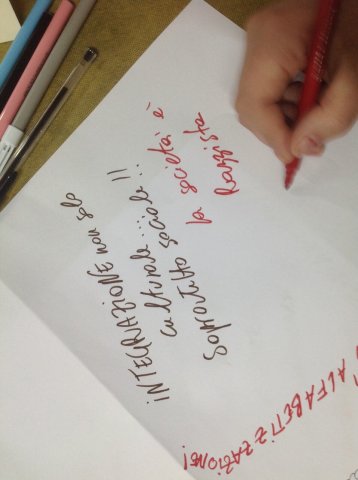 INTEGRAZIONE non solo
culturale.....
Sopratutto sociale!!!
la società è
Razzista
ALFABETIZZAZIONE!